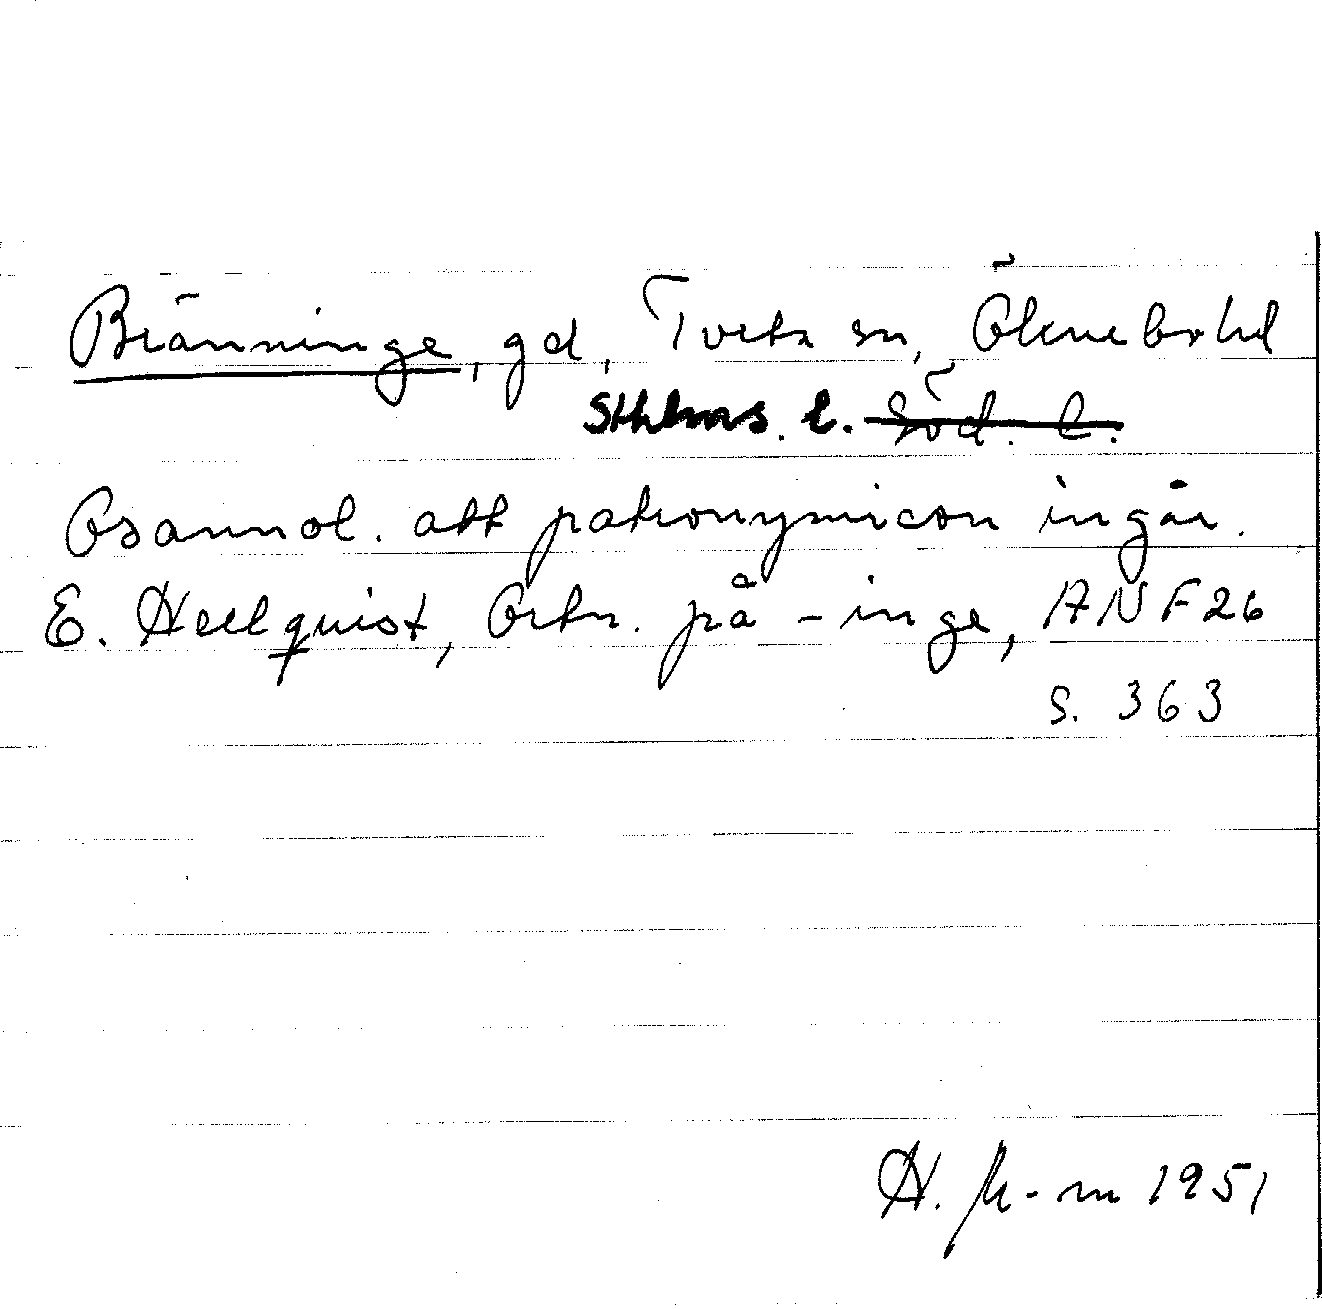 Bränninge, gd, Tveta sn, Öknebo hd
Sthlms. l. Söd. l.
Osannol. att patronymicon ingår.
E. Hellquist, Ortn. på -inge, ANF 26
s. 363
H. M-m 1951